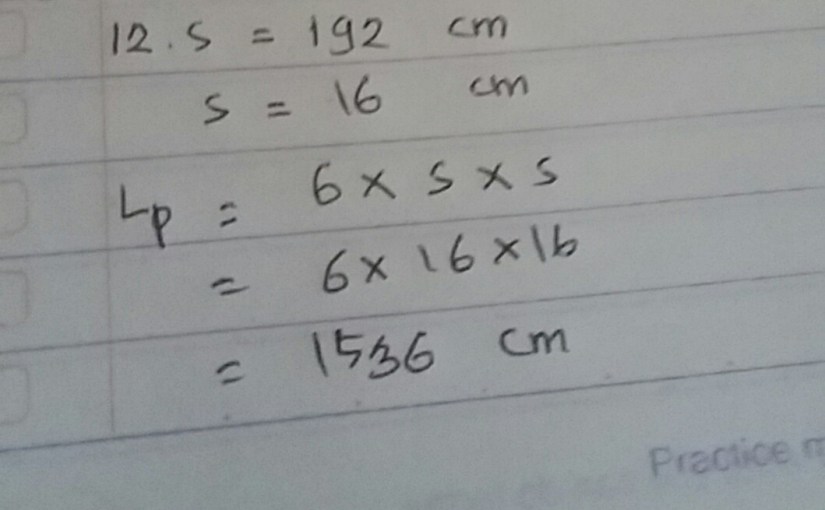 12 . s = 192 cm
s = 16 cm
Lp = 6 × s × s
= 6 × 16 × 16
= 1536 cm
Practice